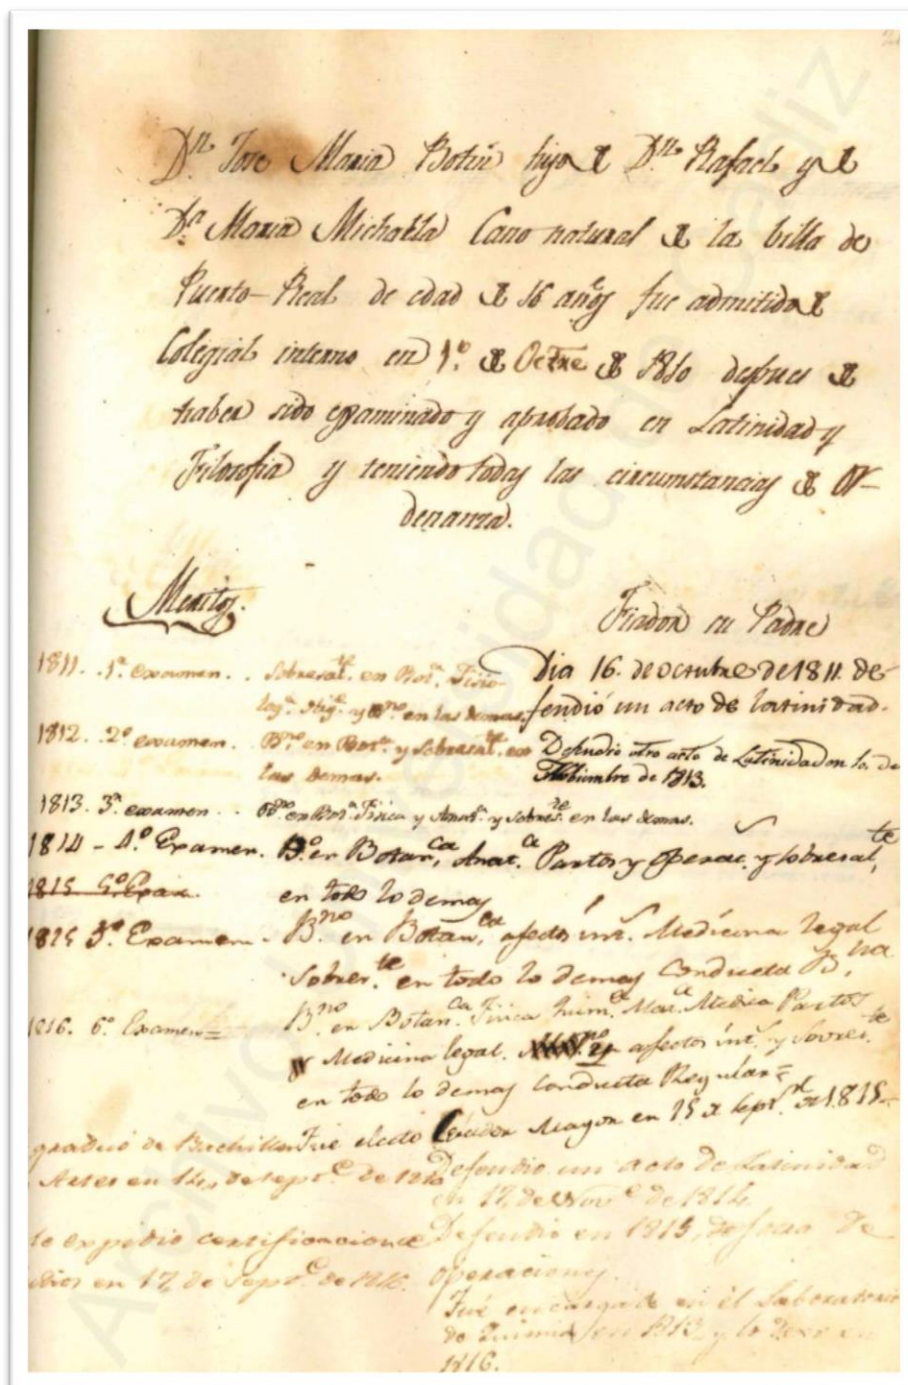 Dn. Jose Maria Botin hijo de Dn. Rafael y de
Da. Maria Michaela Cano natural de la billa de
Puerto-Real de edad de 16 años fue admitido de
Colegial interno en 1º. de Octre de 1810 despues de
haber sido examinado y aprobado en Latinidad y
Filosofia y teniendo todas las circumstancias de Or-
denanza.
Meritos.
Fiador su Padre
1811. 1º. examen. . Sobresalte. en Bota. Fisio-
loga. Hige. y Bno. en las demas.
Dia 16. de octubre de 1811. de-
fendió un acto de latinidad.
1812. 2º examen. Bno. en Bota. y Sobresalte. en
las demas.
Defendio otro acto de Latinidad en 10. de
Nobiembre de 1813.
1813. 3º. examen . . Bno. en Bota. Fisica y Anata. y sobreste. en las demas.
1814 - 4º. Examen. Bº. en Botanca, Anatca. Partos y operac. y sobresalte,
en todo lo demas
1815 5º. Exam.
1815 5º. Examen. - Bno. en Botanca, afectos ints. Medicina legal
Sobreste. en todo lo demas Conducta Bna,
1816. 6º. Examen= Bno. en Botanca. Fisica Quimca. Mata. Medica Partos
Medicina legal. afectos ints. y Sovreste.
en todo lo demas Conducta Regular=
Fue electo Mayor en 15 de Septe. de 1815.
graduó de Bachiller
Artes en 14, de septe. de 1816
Defendio un acto de Latinidad
en 17, de Nove. de 1814
Defendio en 1815, de
operaciones.
expidio certificacion
en 17, de Septe. de 1816.
Fué encargado en el Laboratorio
de Quimica en 1813, y lo en
1816.
Archivo Universidad de Cádiz